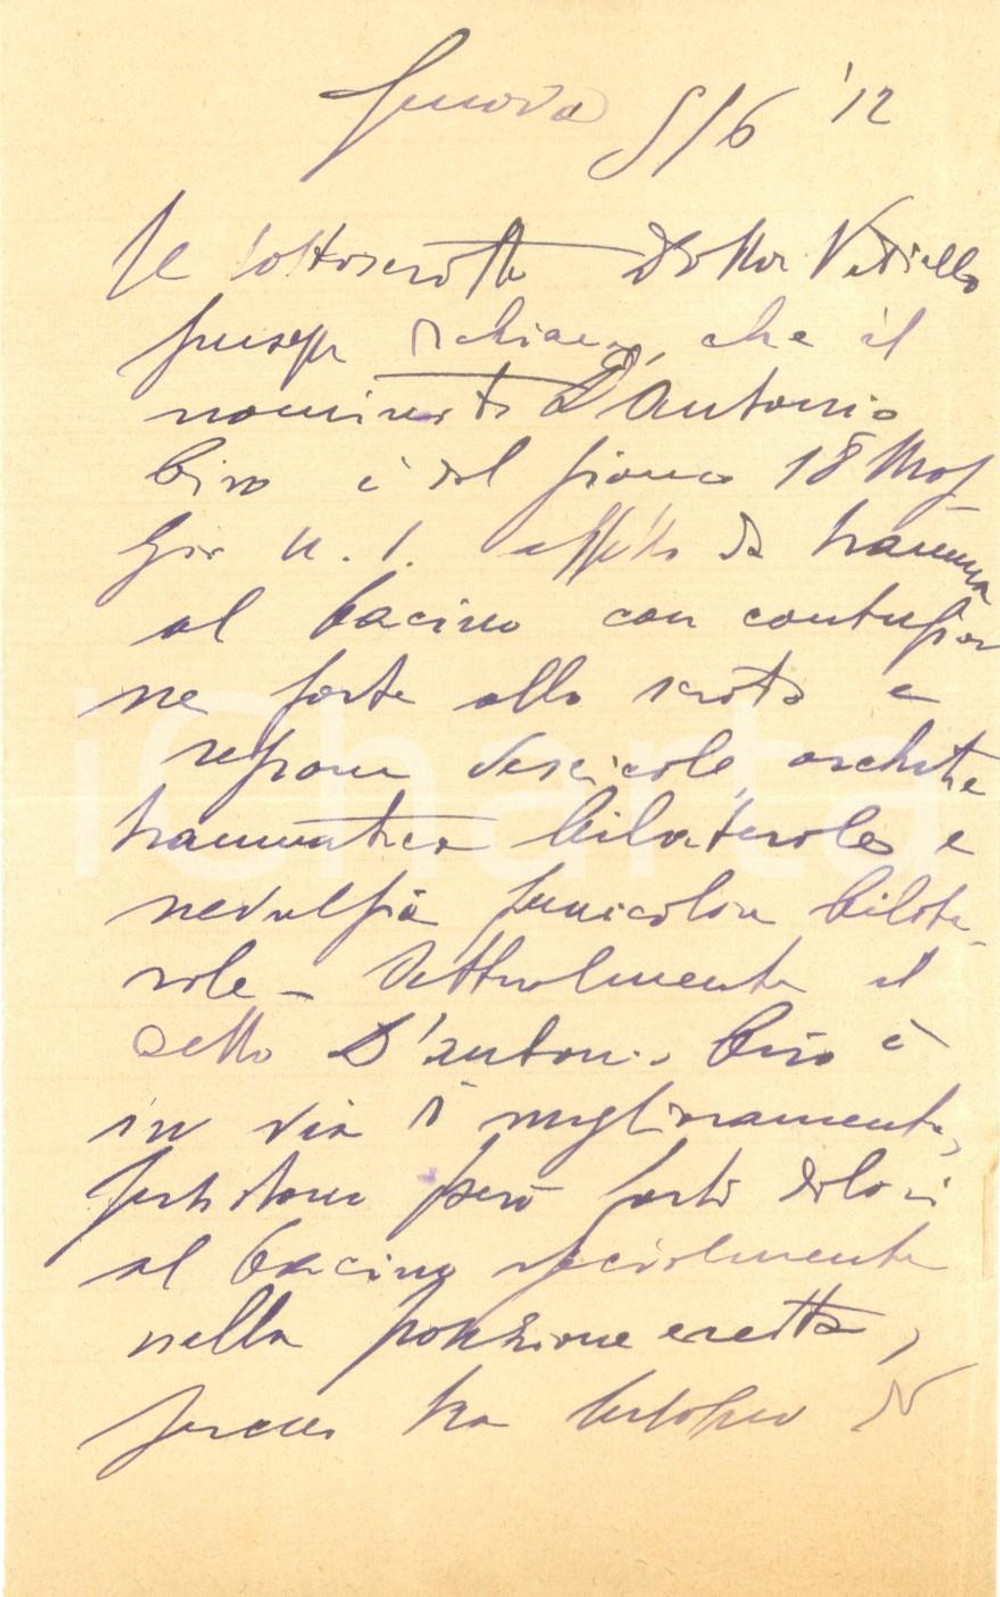 Genova 5/6 '12
Il sottoscritto Dottor Vitiello
Giuseppe dichiara, che il
nominato D'Antonio
Ciro è dal giorno 18 Mag
gio u. s. affetto da trauma
al bacino con contusio
ne forte allo scroto e
regione vescicale, orchite
traumatica bilaterale e
nevralgia funicolare bilate-
rale - Attualmente il
detto D'Antonio Ciro è
in via di miglioramento,
persistono però forti dolori
al bacino specialmente
nella posizione eretta,
perciò ha bisogno di